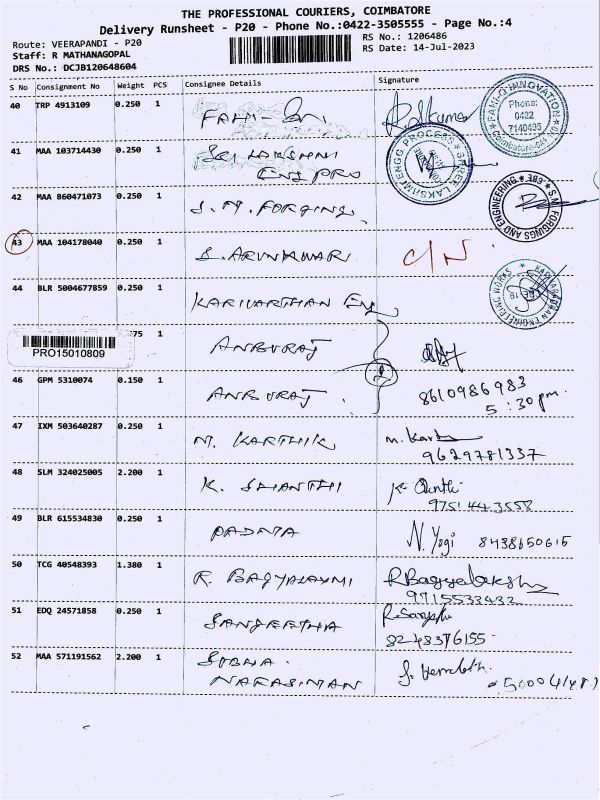 THE PROFESSIONAL COURIERS, COIMBATORE
Delivery Runsheet - P20 - Phone No.:0422-3505555 - Page No.:4
Route: VEERAPANDI - P20
RS No.: 1206486
Staff: R MATHANAGOPAL
RS Date: 14-Jul-2023
DRS No.: DCJB120648604
S No Consignment No Weight PCS Consignee Details Signature
40 TRP 4913109 0.250 1
Phone: 0422 7140435
41 MAA 103714430 0.250 1 SRI LAKSHMI
ENG PRO
SHREE LAKSHMI ENGG PROCESS
42 MAA 860471073 0.250 1 S. M. FORGING
S.M FORGINGS AND ENGINEERING * CBE *
43 MAA 104178040 0.250 1 S. ARUNKUMAR C/N
44 BLR 5004677859 0.250 1 KARIVARTHAN ENG
ENGINEERING WORKS
75 1 ANBURAJ
PRO15010809
46 GPM 5310074 0.150 1 ANBURAJ. 8610986983
5:30pm.
47 IXM 503640287 0.250 1 M. KARTHIK
9629781337
48 SLM 324025005 2.200 1 K. SHANTHI
9751443558
49 BLR 615534830 0.250 1 PADMA N. Yogi 8438650615
50 TCG 40548393 1.380 1 R. BAGYALAXMI
9715533432
51 EDQ 24571858 0.250 1 SANGEETHA
8248376155
52 MAA 571191562 2.200 1 SOBHA
NARASIMAN